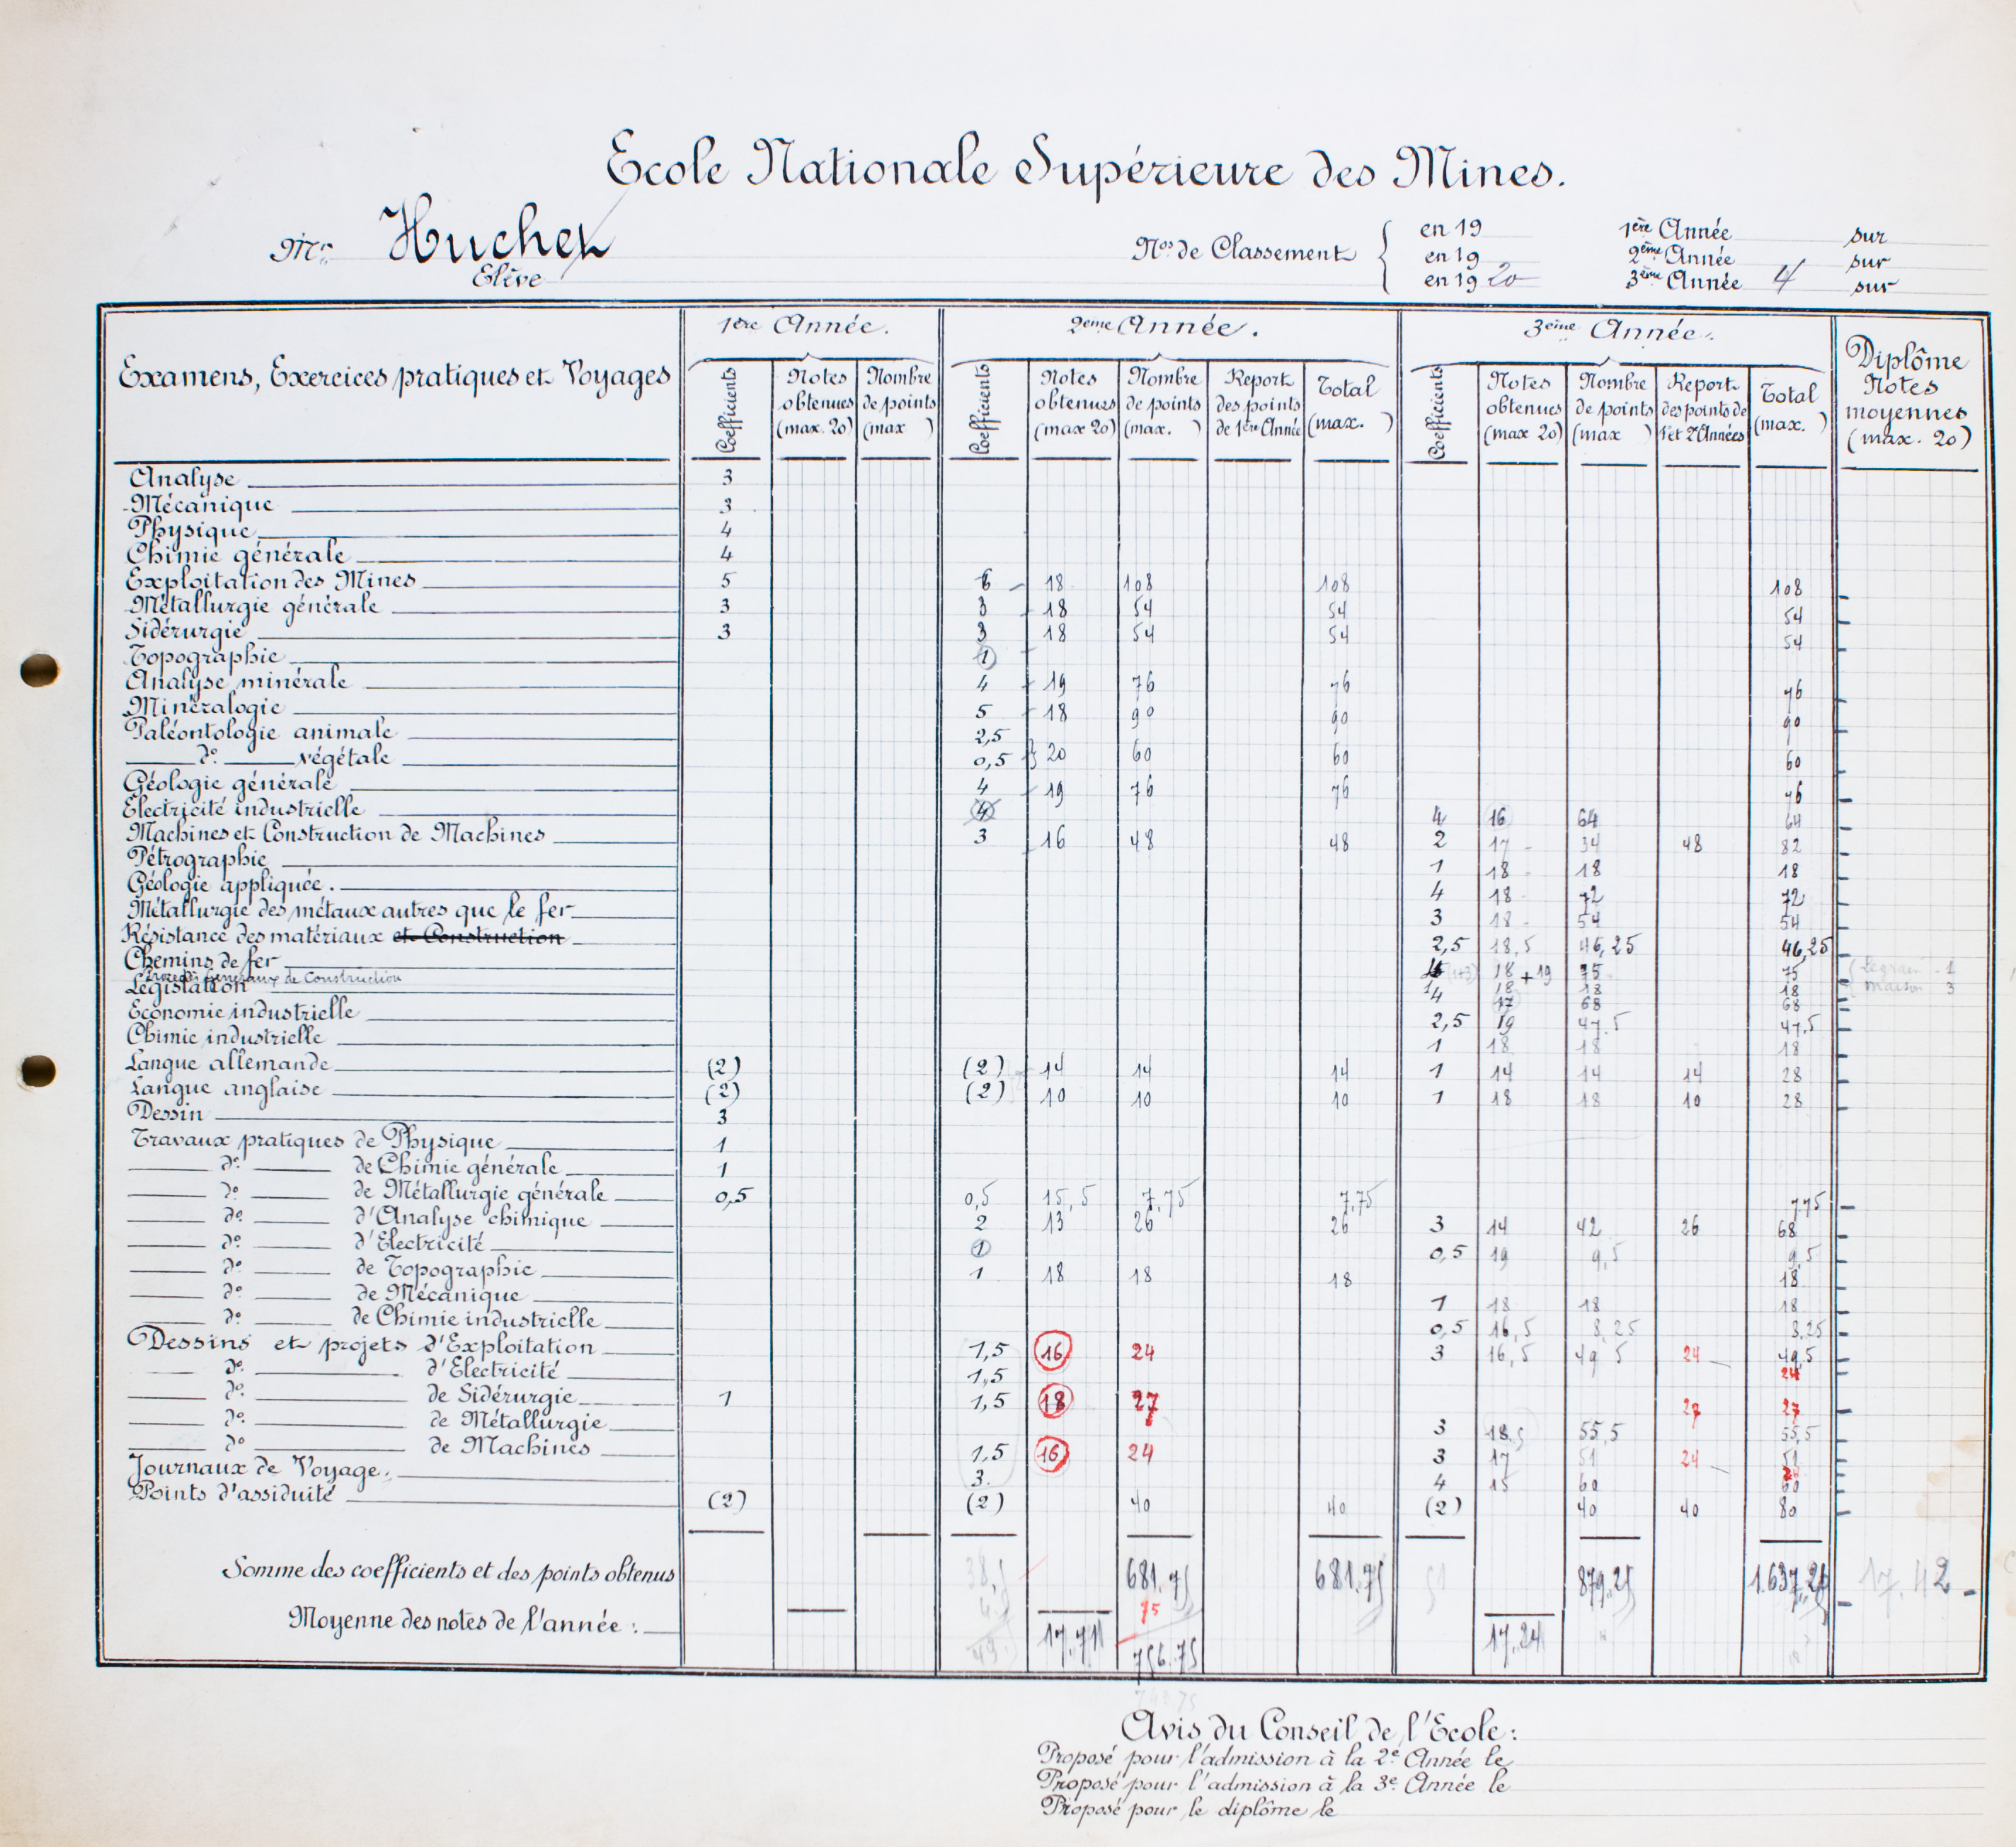 Ecole Nationale Supérieure des Mines.
Mr. Huchez
Elève
Nos. de Classement { en 19 1ère Année sur
en 19 2ème Année sur
en 19 20 3ème Année 4 sur
Examens, Exercices pratiques et Voyages 1ère Année. 2ème Année. 3ème Année. Diplôme Notes moyennes (max. 20)
Coefficients Notes obtenues (max. 20) Nombre de points (max ) Coefficients Notes obtenues (max 20) Nombre de points (max. ) Report des points de 1ère Année Total (max. ) Coefficients Notes obtenues (max 20) Nombre de points (max ) Report des points de 1 et 2 Années Total (max. )
Analyse 3
Mécanique 3
Physique 4
Chimie générale 4
Exploitation des Mines 5 6 18 108 108 108
Métallurgie générale 3 3 18 54 54 54
Sidérurgie 3 3 18 54 54 54
Topographie 1
Analyse minérale 4 19 76 76 76
Minéralogie 5 18 90 90 90
Paléontologie animale 2,5
do. végétale 0,5 } 20 60 60 60
Géologie générale 4 19 76 76 76
Electricité industrielle 4 4 16 64 64
Machines et Construction de Machines 3 16 48 48 2 17 34 48 82
Pétrographie 1 18 18 18
Géologie appliquée. 4 18 72 72
Métallurgie des métaux autres que le fer 3 18 54 54
Résistance des matériaux et Construction 2,5 18,5 46,25 46,25
Chemins de fer 18 + 19 75 75 1
généraux de Construction 3
Législation 1 18 18 18
Economie industrielle 4 17 68 68
Chimie industrielle 2,5 19 47.5 47,5
1 18 18 18
Langue allemande (2) (2) 14 14 14 1 14 14 14 28
Langue anglaise (2) (2) 10 10 10 1 18 18 10 28
Dessin 3
Travaux pratiques de Physique 1
do. de Chimie générale 1
do. de Métallurgie générale 0,5 0,5 15,5 7,75 7,75 7,75
do. d'Analyse chimique 2 13 26 26 3 14 42 26 68
do. d'Electricité 1 0,5 19 9,5 9,5
do. de Topographie 1 18 18 18 18
do. de Mécanique 1 18 18 18
do. de Chimie industrielle 0,5 16,5 8,25 8,25
Dessins et projets d'Exploitation 1,5 16 24 3 16,5 49 5 24 49,5
do. d'Electricité 1,5 24
do. de Sidérurgie 1 1,5 18 27 27 27
do. de Métallurgie 3 18,5 55,5 55,5
do. de Machines 1,5 16 24 3 17 51 24 51
Journaux de Voyage. 3. 4 15 60 24 60
Points d'assiduité (2) (2) 40 40 (2) 40 40 80
Somme des coefficients et des points obtenus 38,5 681.75 681.75 51 879.25 1.637,25 17.42
75
Moyenne des notes de l'année : 17.71 756.75 17.24
Avis du Conseil de l'Ecole :
Proposé pour l'admission à la 2e. Année le
Proposé pour l'admission à la 3e. Année le
Proposé pour le diplôme le